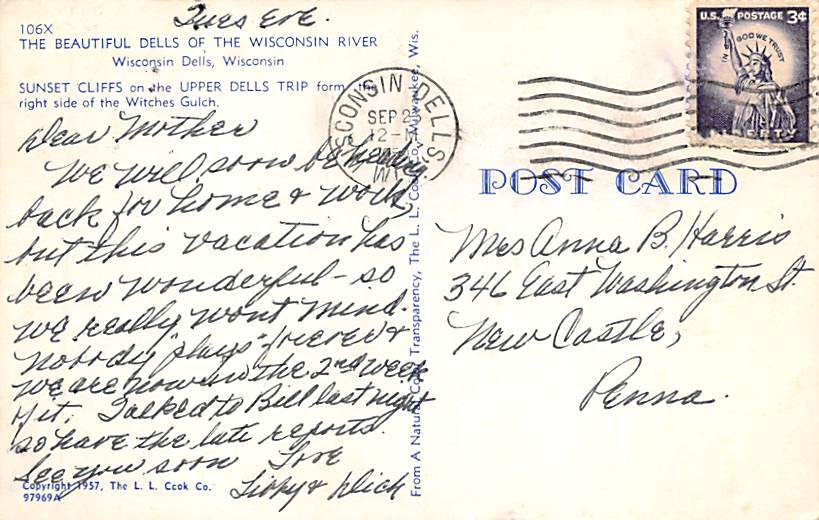 Tues Eve.
106X
THE BEAUTIFUL DELLS OF THE WISCONSIN RIVER
Wisconsin Dells, Wisconsin
SUNSET CLIFFS on the UPPER DELLS TRIP form the
right side of the Witches Gulch.
Dear Mother
We will soon be heading
back for home & work,
but this vacation has
been wonderful - so
we really wont mind.
Nobody "plays" forever &
we are now in the 2nd week
of it. Talked to Bill last night
so have the late reports.
See you soon Love
Libby & Dick
Copyright 1957, The L. L. Cook Co.
97969A
From A Natural Color Transparency, The L. L. Cook Co., Milwaukee, Wis.
WISCONSIN DELLS
SEP 2
12-M
WIS.
U.S. POSTAGE 3¢
IN GOD WE TRUST
LIBERTY
POST CARD
Mrs Anna B. Harris
346 East Washington St.
New Castle,
Penna.